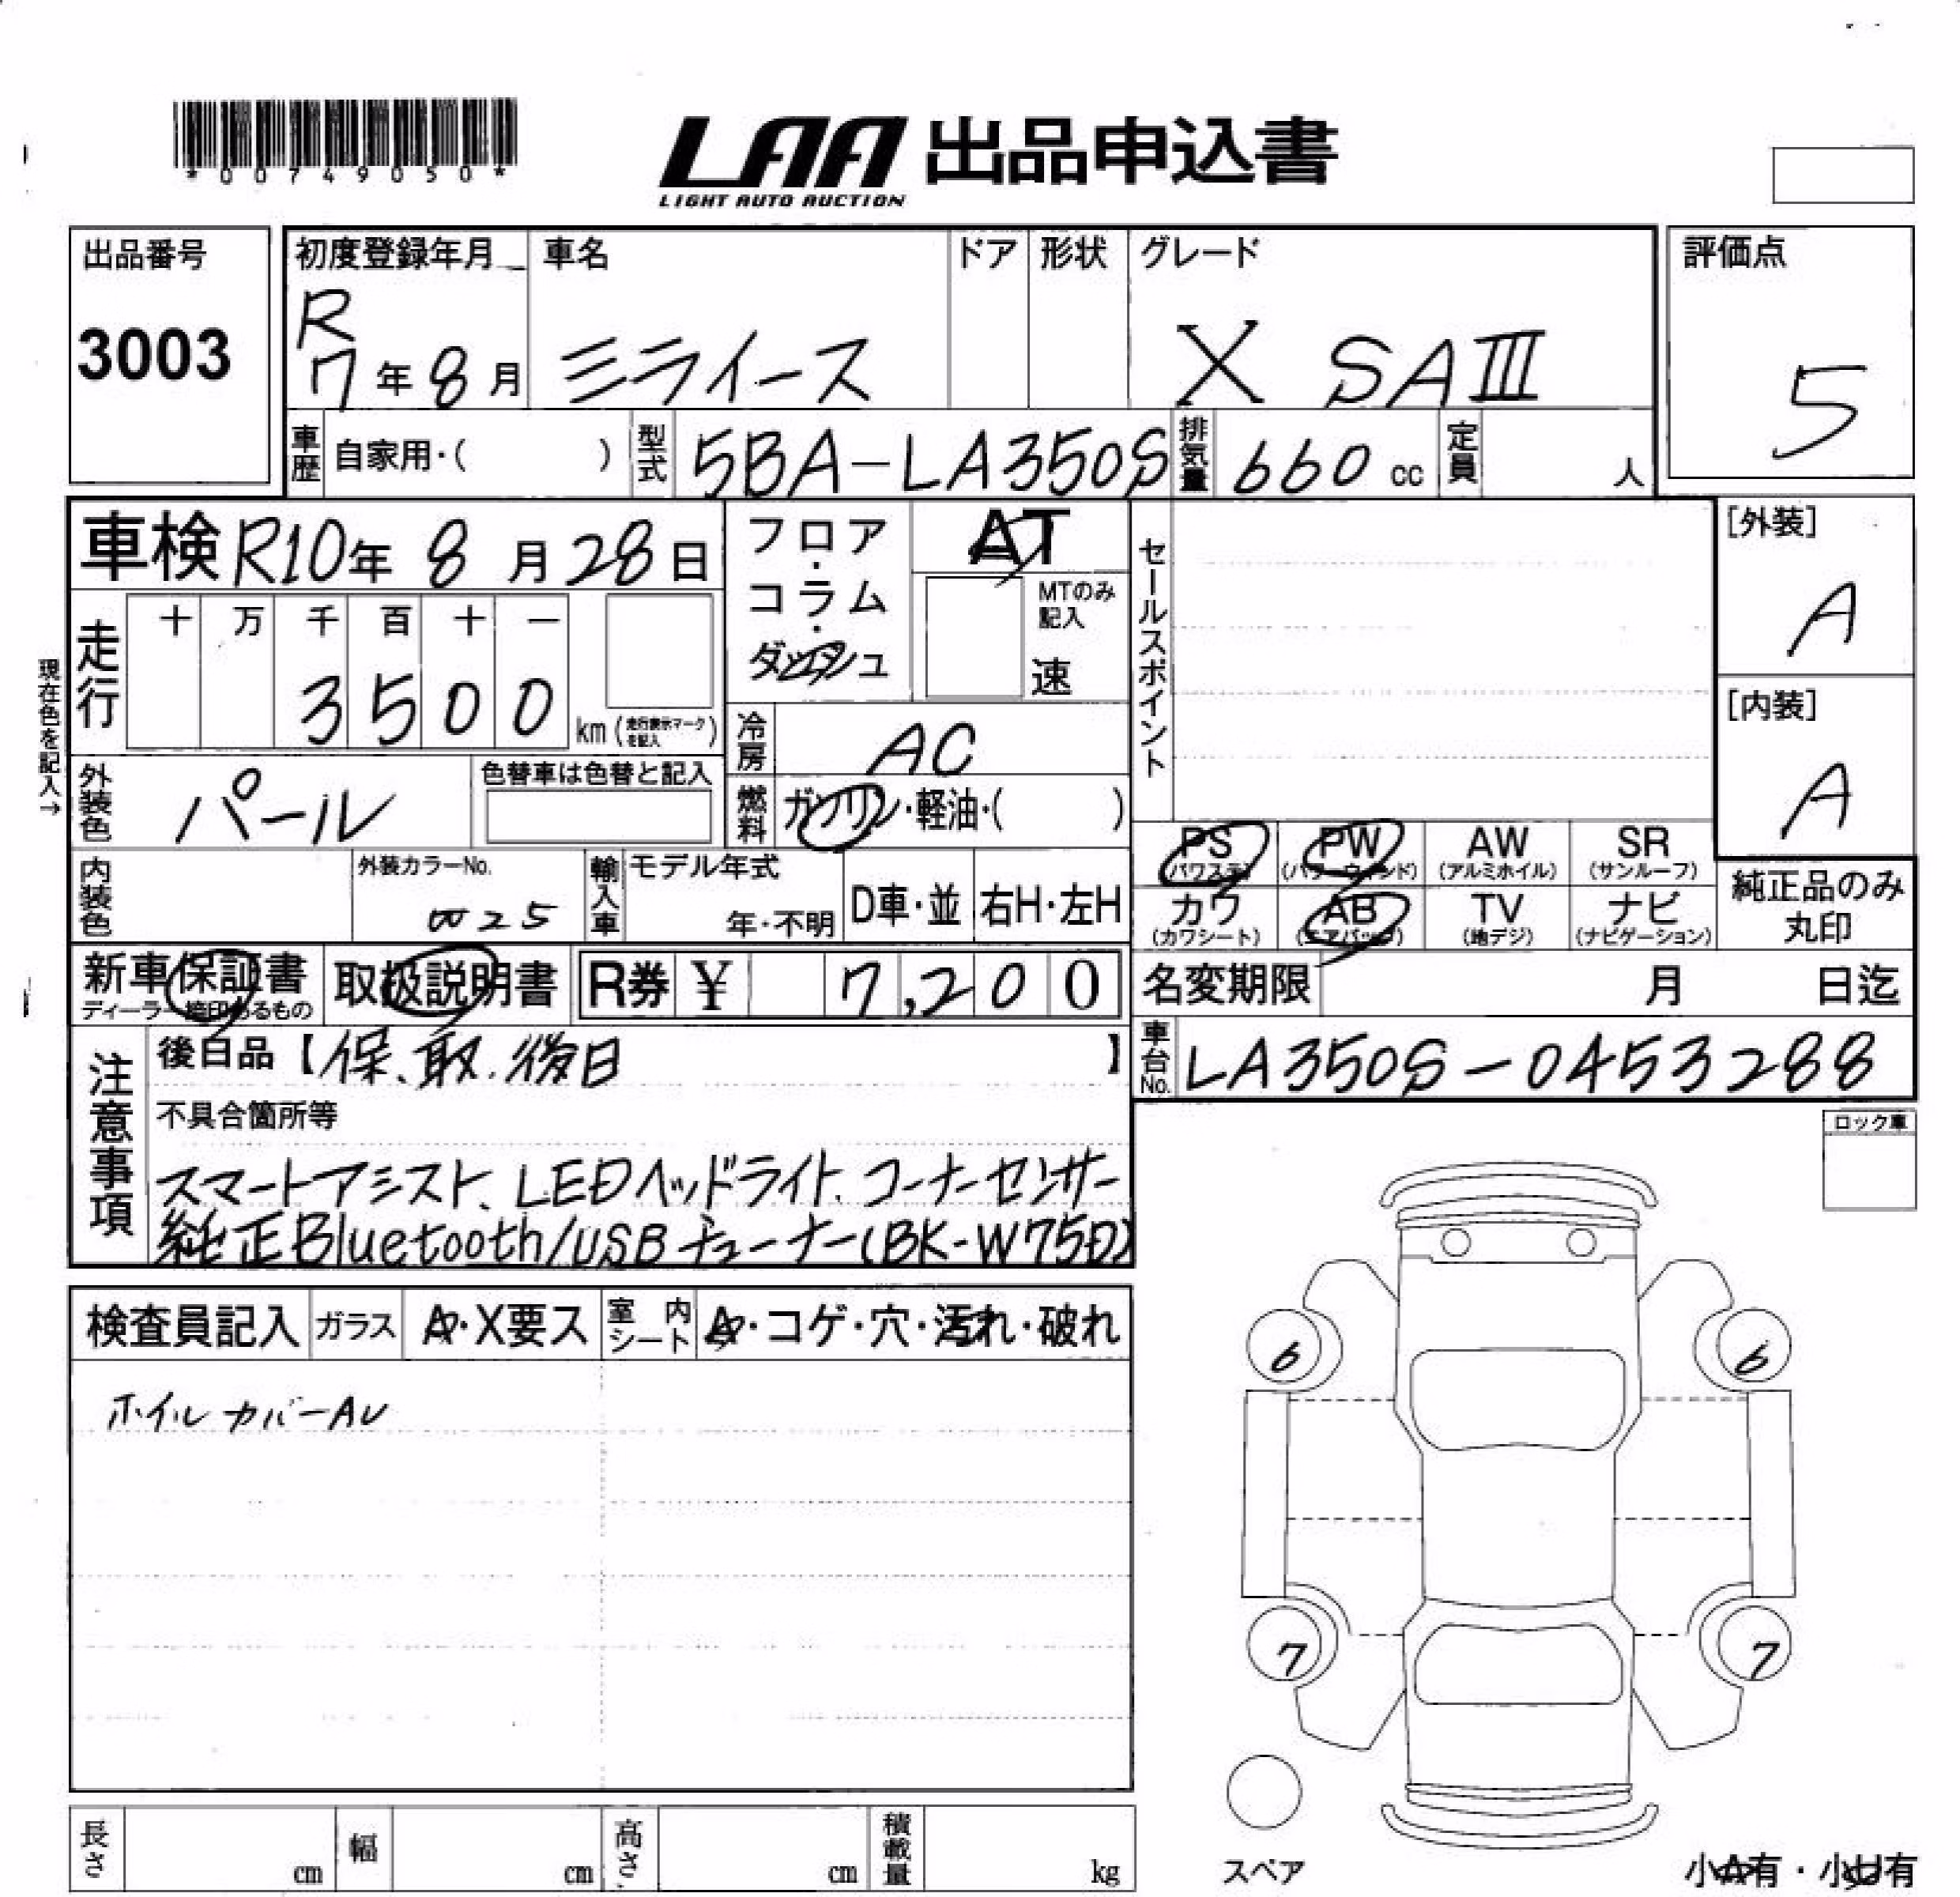 *00749050*
LAA 出品申込書
LIGHT AUTO AUCTION
出品番号
3003
初度登録年月
R
7年8月
車名
ミライース
ドア
形状
グレード
X SAIII
評価点
5
車歴 自家用・( )
型式 5BA-LA350S
排気量 660 cc
定員 人
車検 R10年 8月28日
フロア・コラム・ダッシュ
AT
MTのみ記入
速
セールスポイント
[外装]
A
[内装]
A
現在色を記入→
走行 十 万 千 百 十 一
3500 km (走行表示マークを記入)
冷房 AC
外装色 パール
色替車は色替と記入
燃料 ガソリン・軽油・( )
PS (パワステ)
PW (パワーウィンド)
AW (アルミホイル)
SR (サンルーフ)
カワ (カワシート)
AB (エアバッグ)
TV (地デジ)
ナビ (ナビゲーション)
純正品のみ丸印
内装色
外装カラーNo.
W25
輸入車
モデル年式
年・不明
D車・並
右H・左H
新車保証書
ディーラー捺印あるもの
取扱説明書
R券 ¥ 7,200
名変期限 月 日迄
車台No. LA350S-0453288
注意事項
後日品【保、取、後日】
不具合箇所等
スマートアシスト、LEDヘッドライト、コーナーセンサー
純正Bluetooth/USBチューナー(BK-W75D)
ロック車
検査員記入
ガラス A・X要ス
室内シート A・コゲ・穴・汚れ・破れ
ホイルカバーAU
6
6
7
7
スペア
長さ cm
幅 cm
高さ cm
積載量 kg
小A有・小U有